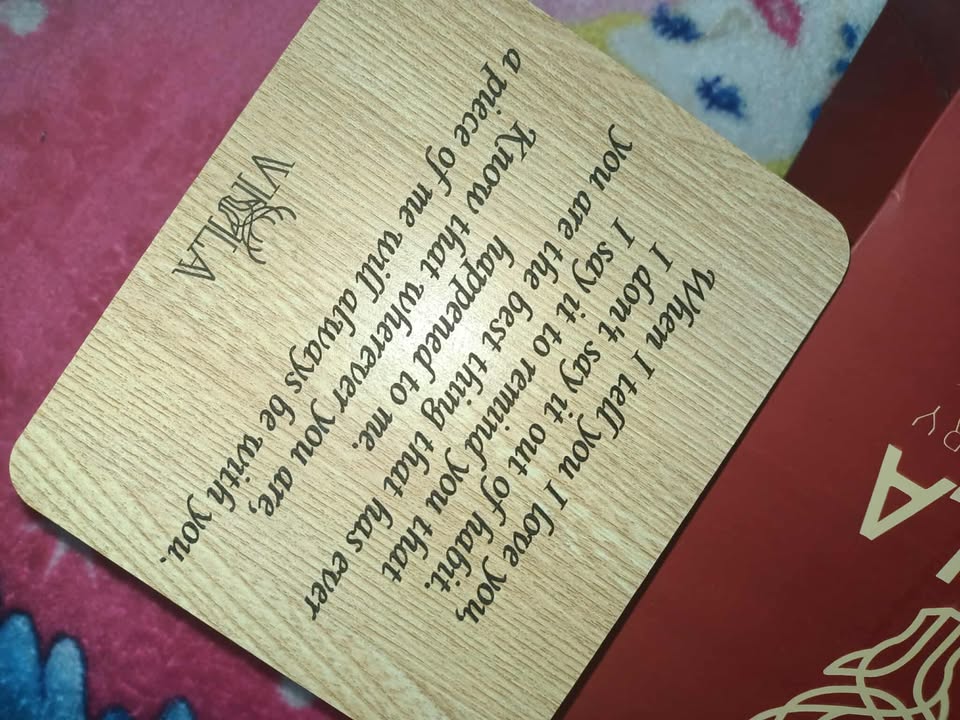 When I tell you I love you,
I don't say it out of habit.
I say it to remind you that
you are the best thing that has ever
happened to me.
Know that wherever you are,
a piece of me will always be with you.